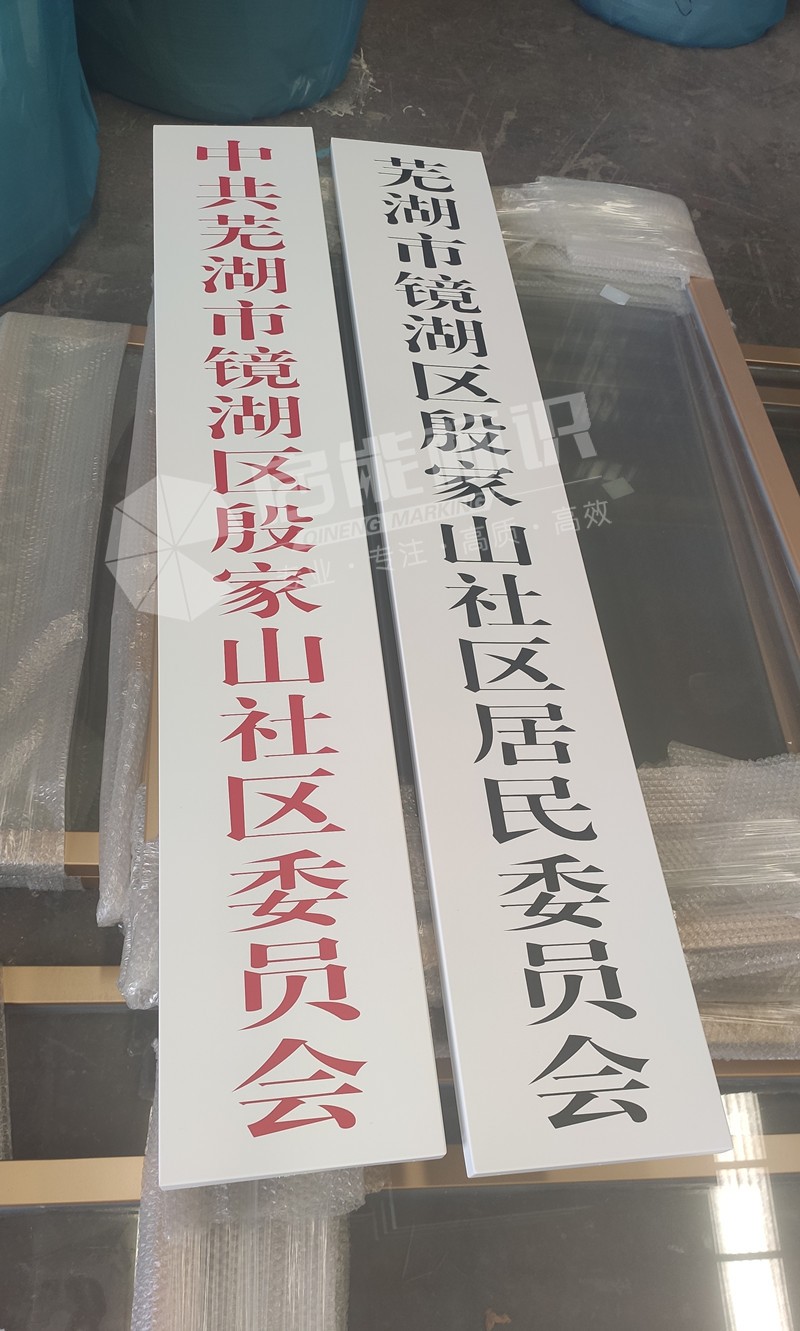 中共芜湖市镜湖区殷家山社区委员会
芜湖市镜湖区殷家山社区居民委员会
DINENG MARKING
专注·高质·高效